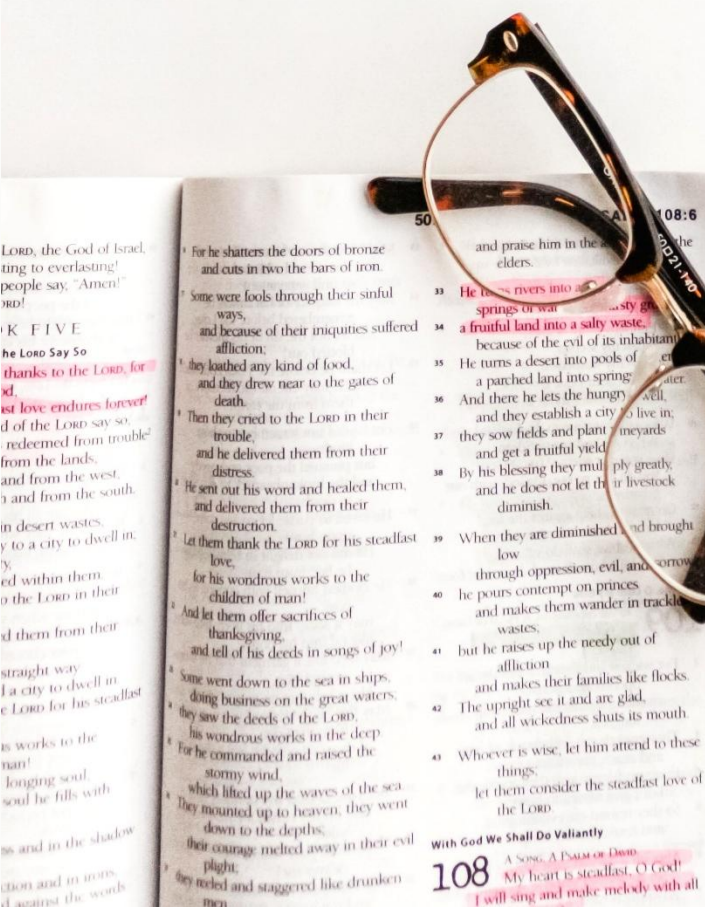 LORD, the God of Israel,
ting to everlasting!
people say, "Amen!"
ORD!
K FIVE
he LORD Say So
thanks to the LORD, for
od,
ast love endures forever!
d of the LORD say so,
redeemed from trouble
from the lands,
and from the west,
h and from the south.
in desert wastes,
y to a city to dwell in;
y,
ed within them
o the LORD in their
d them from their
straight way
l a city to dwell in
e LORD for his steadfast
s works to the
man!
longing soul,
soul he fills with
ss and in the shadow
ction and in irons,
d against the words
For he shatters the doors of bronze
and cuts in two the bars of iron.
Some were fools through their sinful
ways,
and because of their iniquities suffered
affliction;
they loathed any kind of food,
and they drew near to the gates of
death.
Then they cried to the LORD in their
trouble,
and he delivered them from their
distress.
He sent out his word and healed them,
and delivered them from their
destruction.
Let them thank the LORD for his steadfast
love,
for his wondrous works to the
children of man!
And let them offer sacrifices of
thanksgiving,
and tell of his deeds in songs of joy!
Some went down to the sea in ships,
doing business on the great waters;
they saw the deeds of the LORD,
his wondrous works in the deep
For he commanded and raised the
stormy wind,
which lifted up the waves of the sea.
They mounted up to heaven; they went
down to the depths;
their courage melted away in their evil
plight;
they reeled and staggered like drunken
men
50 108:6
and praise him in the the
elders.
33 He rivers into a
springs of
34 a fruitful land into a salty waste,
because of the evil of its inhabitant
35 He turns a desert into pools of
a parched land into springs ater.
36 And there he lets the hungry well,
and they establish a city to live in;
37 they sow fields and plant vineyards
and get a fruitful yield
38 By his blessing they multiply greatly,
and he does not let their livestock
diminish.
39 When they are diminished and brought
low
through oppression, evil, and sorrow
40 he pours contempt on princes
and makes them wander in trackle
wastes;
41 but he raises up the needy out of
affliction
and makes their families like flocks.
42 The upright see it and are glad,
and all wickedness shuts its mouth.
43 Whoever is wise, let him attend to these
things;
let them consider the steadfast love of
the LORD.
With God We Shall Do Valiantly
108 A SONG. A PSALM OF DAVID.
My heart is steadfast, O God!
I will sing and make melody with all
50 21-140